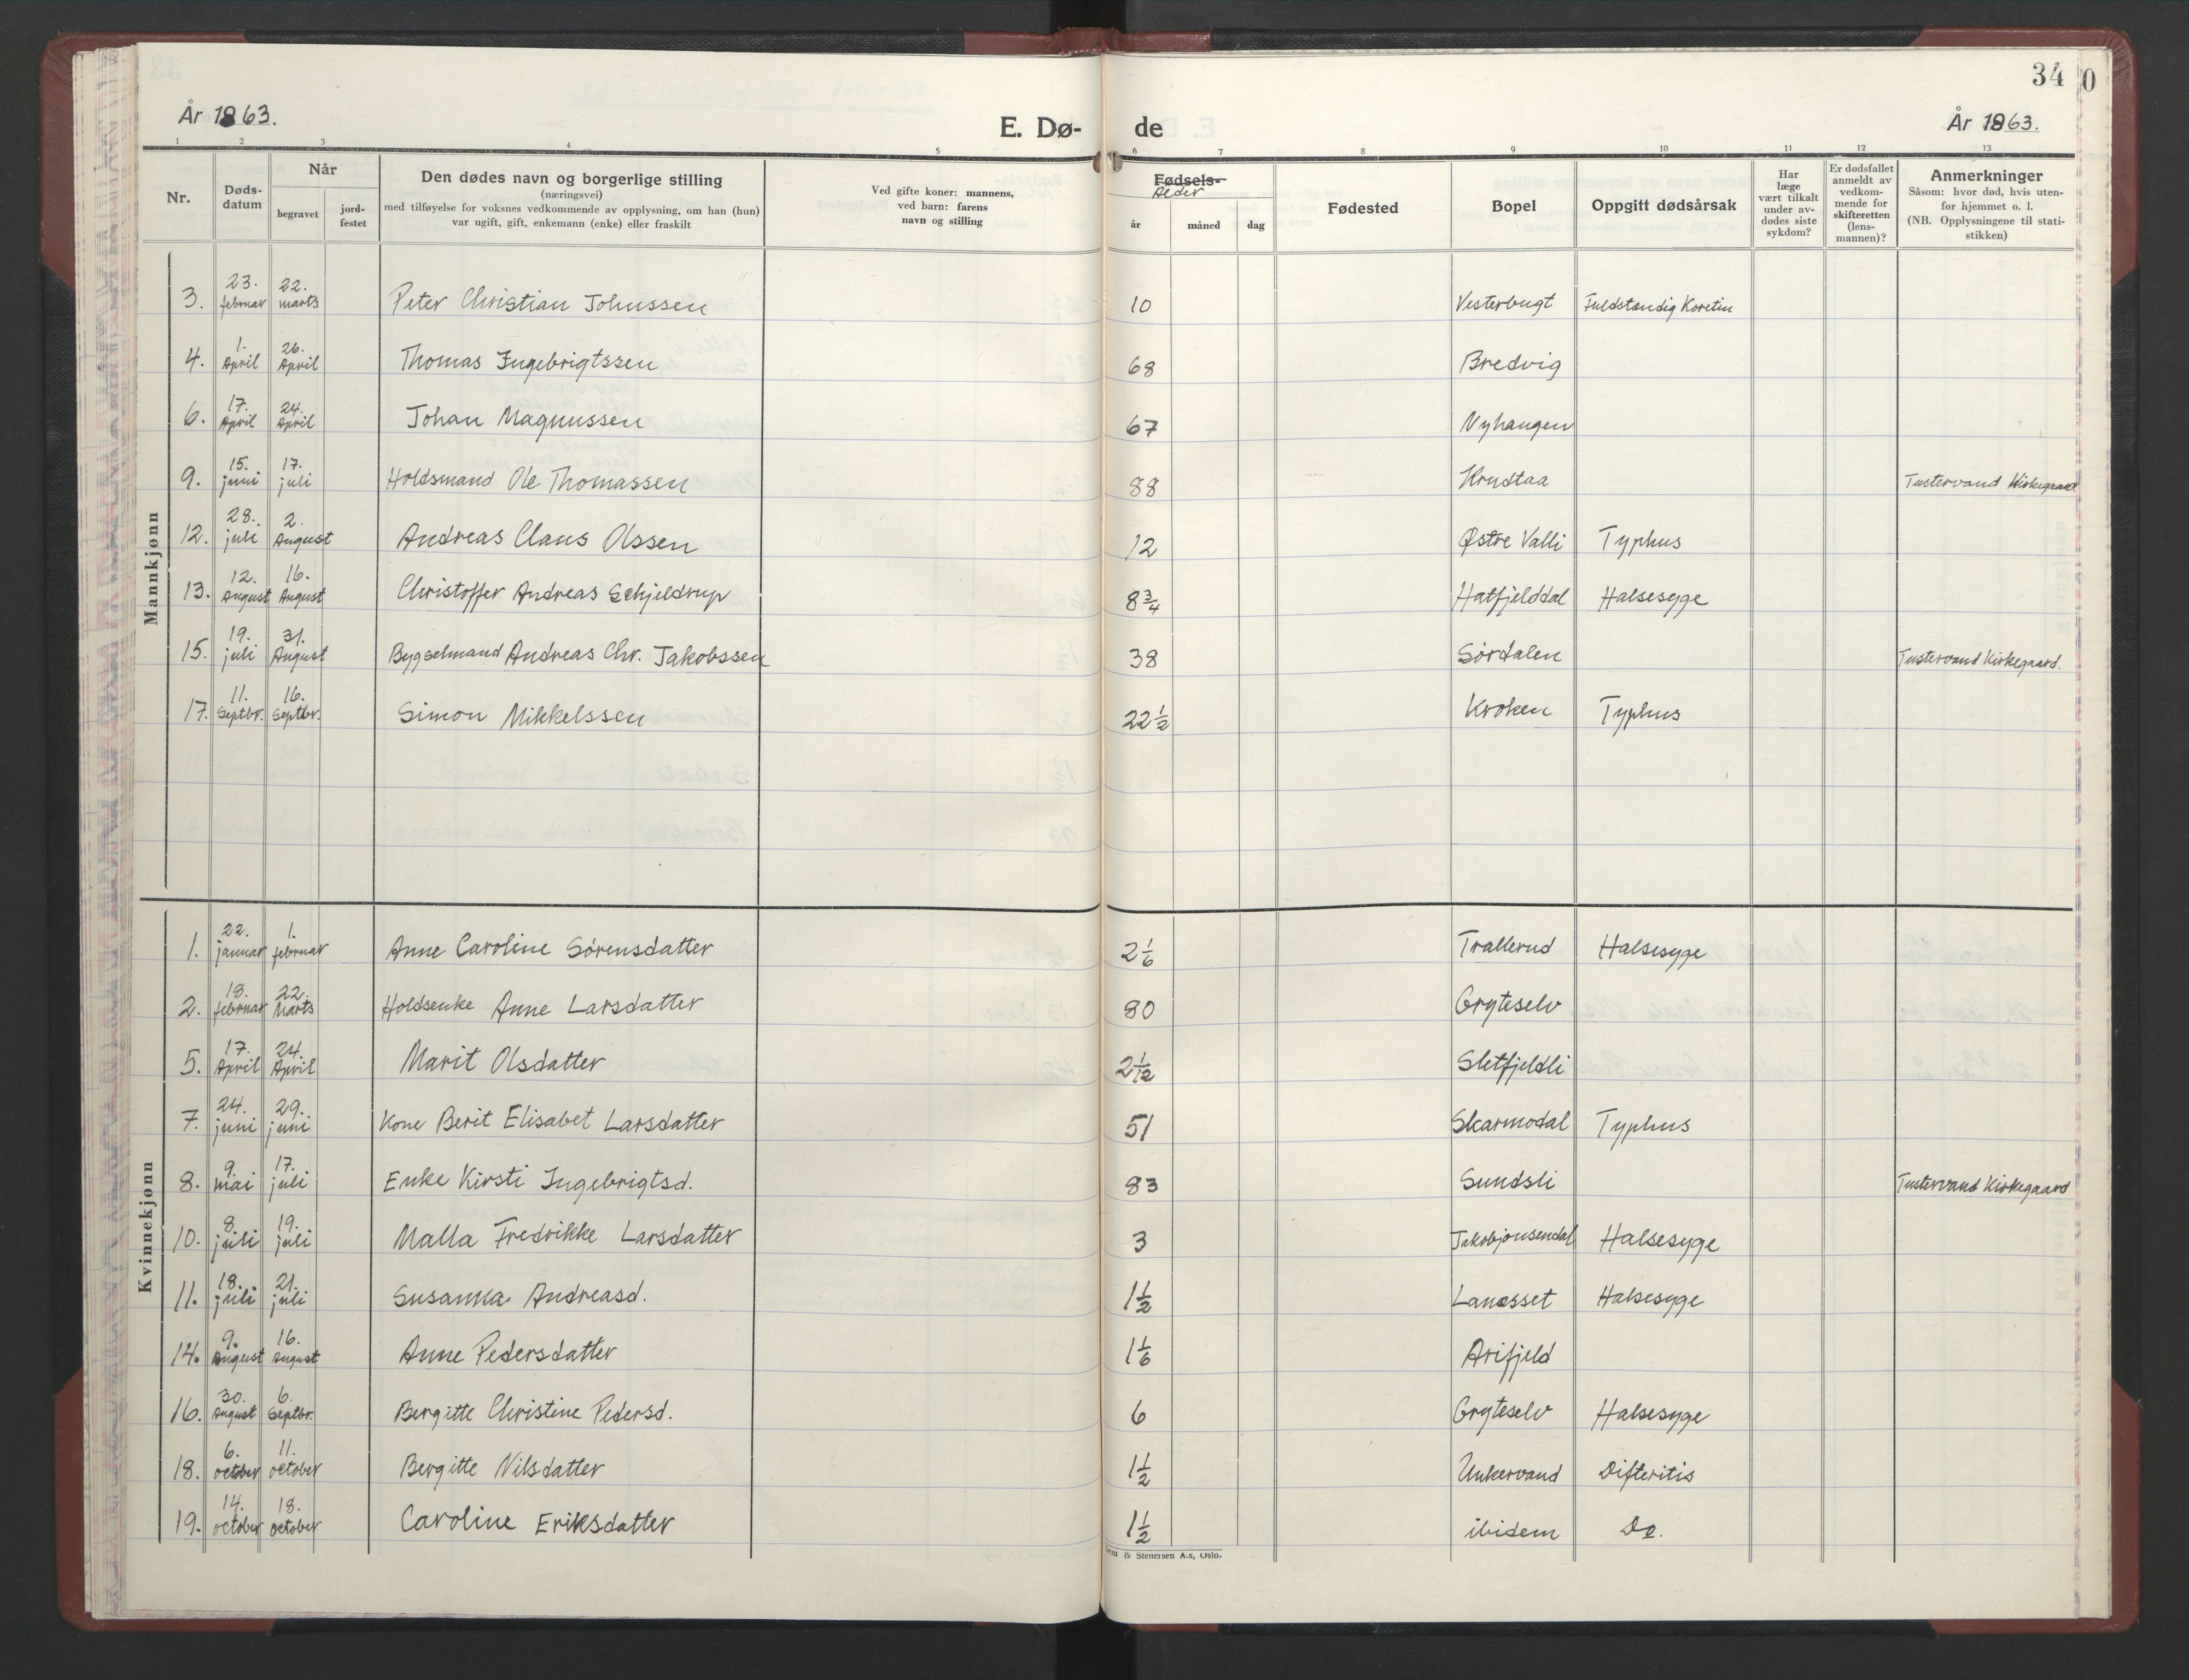 34 0
År 1863. E. Dø- de År 1863.
1 2 3 4 5 6 7 8 9 10 11 12 13
Nr. Døds-datum Når begravet jord-festet Den dødes navn og borgerlige stilling (næringsvei) med tilføyelse for voksnes vedkommende av opplysning, om han (hun) var ugift, gift, enkemann (enke) eller fraskilt Ved gifte koner: mannens, ved barn: farens navn og stilling Fødsels- Alder år måned dag Fødested Bopel Oppgitt dødsårsak Har læge vært tilkalt under av-dødes siste sykdom? Er dødsfallet anmeldt av vedkom-mende for skifteretten (lens-mannen)? Anmerkninger Såsom: hvor død, hvis uten-for hjemmet o. l. (NB. Opplysningene til stati-stikken)
Mannkjønn
3. 23. februar 22. marts Peter Christian Johnssen 10 Vesterbugt Fuldstændig Koretin
4. 1. April 26. April Thomas Ingebrigtssen 68 Bredvig
6. 17. April 24. April Johan Magnussen 67 Nyhaugen
9. 15. juni 17. juli Holdsmand Ole Thomassen 88 Krudtaa Tustervand Kirkegaard
12. 28. juli 2. August Andreas Claus Olssen 12 Østre Valli Typhus
13. 12. August 16. August Christoffer Andreas Schjeldrup 8 3/4 Hatfjelddal Halsesyge
15. 19. juli 31. August Bygselmand Andreas Chr. Jakobssen 38 Sørdalen Tustervand Kirkegaard.
17. 11. Septbr. 16. Septbr. Simon Mikkelssen 22 1/2 Kroken Typhus
Kvinnekjønn
1. 22. januar 1. februar Anne Caroline Sørensdatter 2 1/6 Trallerud Halsesyge
2. 18. februar 22. Marts Holdsenke Anne Larsdatter 80 Gryteselv
5. 17. April 24. April Marit Olsdatter 2 1/12 Sletfjeldli
7. 24. juni 29. juni Kone Berit Elisabet Larsdatter 51 Skarmodal Typhus
8. 9. mai 17. juli Enke Kirsti Ingebrigtsd. 83 Sundsli Tustervand Kirkegaard
10. 8. juli 19. juli Malla Fredrikke Larsdatter 3 Jakobjonsendal Halsesyge
11. 18. juli 21. juli Susanna Andreasd. 1 1/2 Lanesset Halsesyge
14. 9. August 16. August Anne Pedersdatter 1 1/6 Arifjeld
16. 30. August 6. Septbr. Bergitte Christine Pedersd. 6 Gryteselv Halsesyge
18. 6. october 11. october Bergitte Nilsdatter 1 1/2 Unkervand Difteritis
19. 14. october 18. october Caroline Eriksdatter 1 1/2 ibidem Do.
& Stenersen A.s, Oslo.